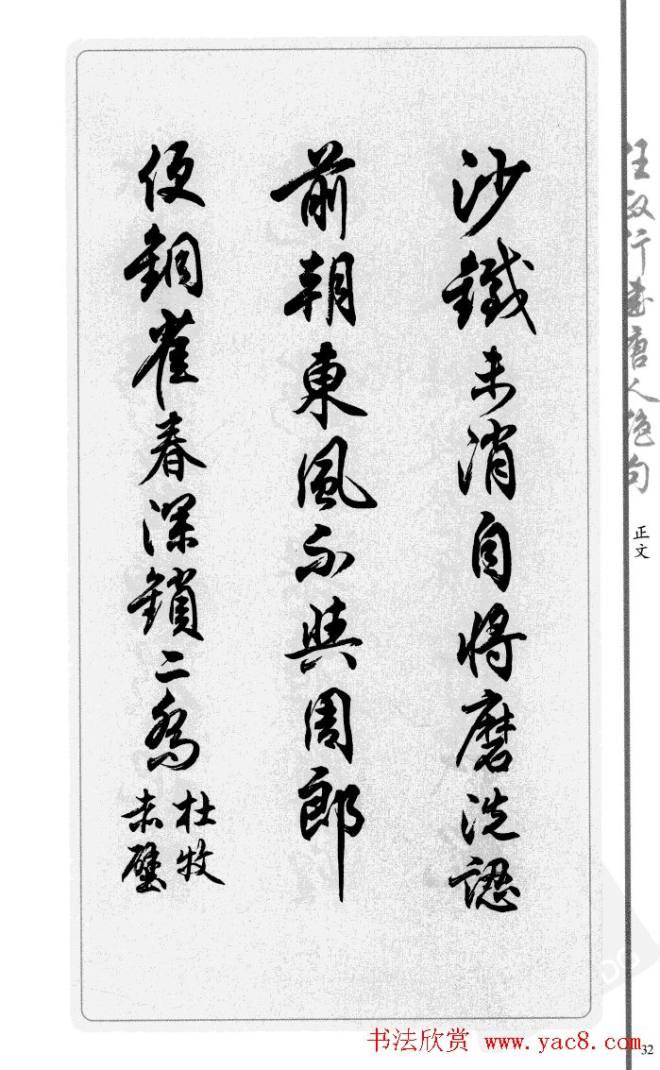 沙鐵未消自將磨洗認
前朝東風不與周郎
便銅雀春深鎖二喬
杜牧
赤壁
任政行書唐人絕句
正文
书法欣赏 www.yac8.com
32